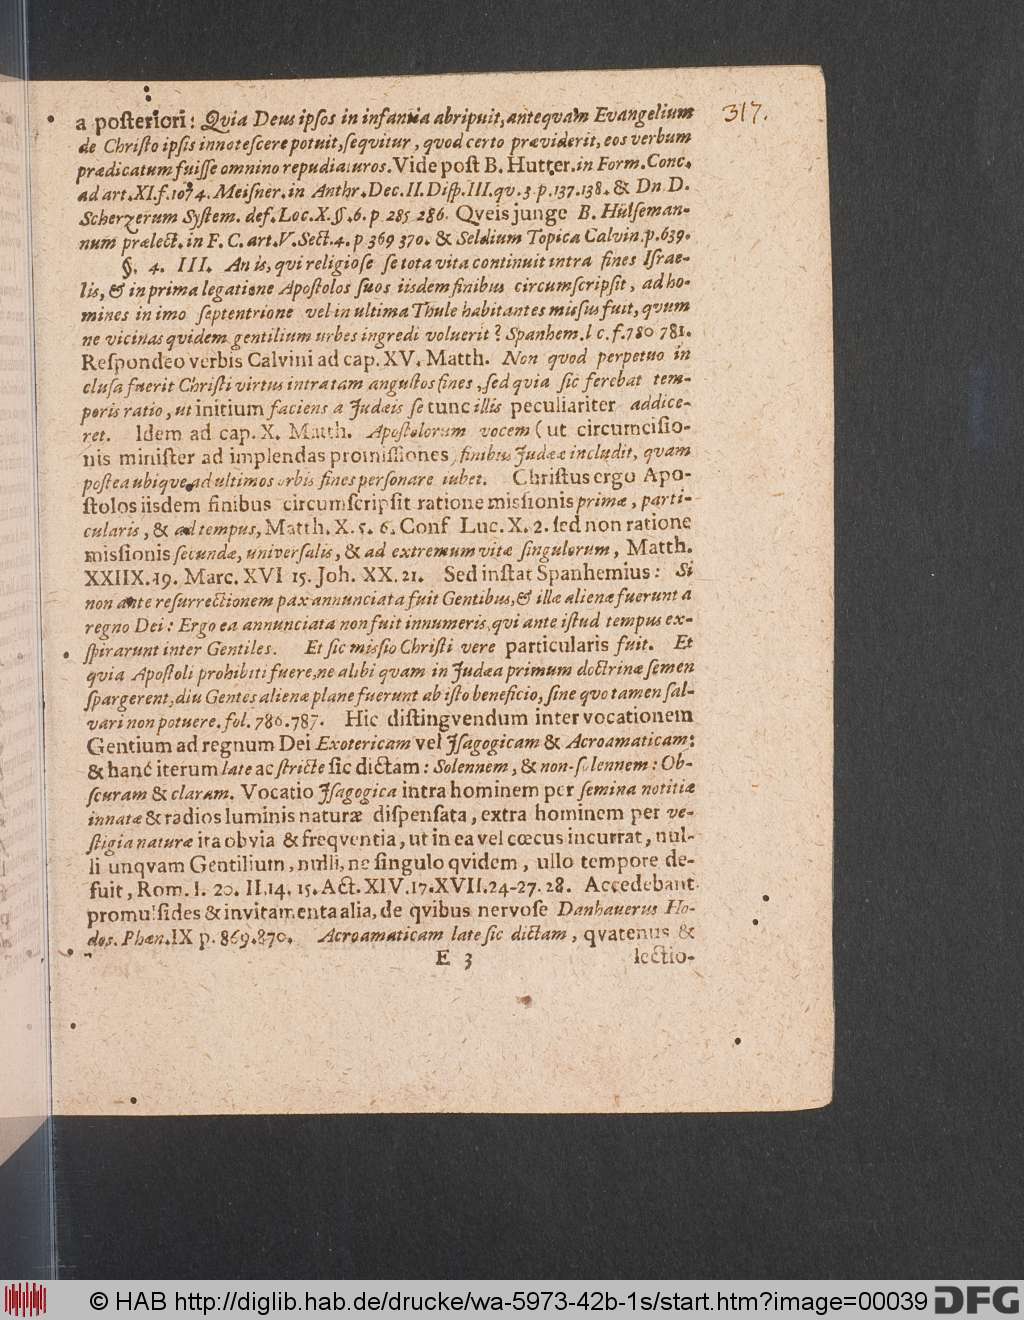 317.
a posteriori: Qvia Deus ipsos in infantia abripuit, antequam Evangelium
de Christo ipsis innotescere potuit, sequitur, quod certo præviderit, eos verbum
prædicatum fuisse omnino repudiaturos. Vide post B. Hutter. in Form. Conc.
ad art. XI. f. 1074. Meisner. in Anthr. Dec. II. Disp. III. qv. 3 p. 137. 138. & Dn D.
Scherzerum System. def. Loc. X. §. 6. p 285 286. Qveis junge B. Hülseman-
num prælect. in F. C. art. V. Sect. 4. p 369 370. & Seldium Topica Calvin. p. 639.
§. 4. III. An is, qui religiose se tota vita continuit intra fines Israe-
lis, & in prima legatione Apostolos suos iisdem finibus circumscripsit, ad ho-
mines in imo septentrione vel in ultima Thule habitantes missus fuit, qvum
ne vicinas quidem gentilium urbes ingredi voluerit? Spanhem. l c. f. 780 781.
Respondeo verbis Calvini ad cap. XV. Matth. Non quod perpetuo in
clusa fuerit Christi virtus intra tam angustos fines, sed quia sic ferebat tem-
poris ratio, ut initium faciens a Judæis se tunc illis peculiariter addice-
ret. Idem ad cap. X. Matth. Apostolorum vocem (ut circumcisio-
nis minister ad implendas promissiones finibus Judææ includit, quam
postea ubique ad ultimos orbis fines personare iubet. Christus ergo Apo-
stolos iisdem finibus circumscripsit ratione missionis primæ, parti-
cularis, & ad tempus, Matth. X. 5. 6. Conf Luc. X. 2. sed non ratione
missionis secundæ, universalis, & ad extremum vitæ singulorum, Matth.
XXIIX. 19. Marc. XVI 15. Joh. XX. 21. Sed instat Spanhemius: Si
non ante resurrectionem pax annunciata fuit Gentibus, & illæ alienæ fuerunt a
regno Dei: Ergo ea annunciata non fuit innumeris, qvi ante istud tempus ex-
spirarunt inter Gentiles. Et sic missio Christi vere particularis fuit. Et
quia Apostoli prohibiti fuere, ne alibi quam in Judæa primum doctrinæ semen
spargerent, diu Gentes alienæ plane fuerunt ab isto beneficio, sine quo tamen sal-
vari non potuere. fol. 786. 787. Hic distingvendum inter vocationem
Gentium ad regnum Dei Exotericam vel Isagogicam & Acroamaticam;
& hanc iterum late ac stricte sic dictam: Solennem, & non-solennem: Ob-
scuram & claram. Vocatio Isagogica intra hominem per semina notitiæ
innatæ & radios luminis naturæ dispensata, extra hominem per ve-
stigia naturæ ita obvia & freqventia, ut in ea vel cœcus incurrat, nul-
li unqvam Gentilium, nulli, ne singulo qvidem, ullo tempore de-
fuit, Rom. I. 20. II. 14. 15. Act. XIV. 17. XVII. 24-27. 28. Accedebant
promulsides & invitamenta alia, de qvibus nervose Danhauerus Ho-
dos. Phæn. IX p. 869. 870. Acroamaticam late sic dictam, qvatenus &
E 3 lectio-
© HAB http://diglib.hab.de/drucke/wa-5973-42b-1s/start.htm?image=00039
DFG